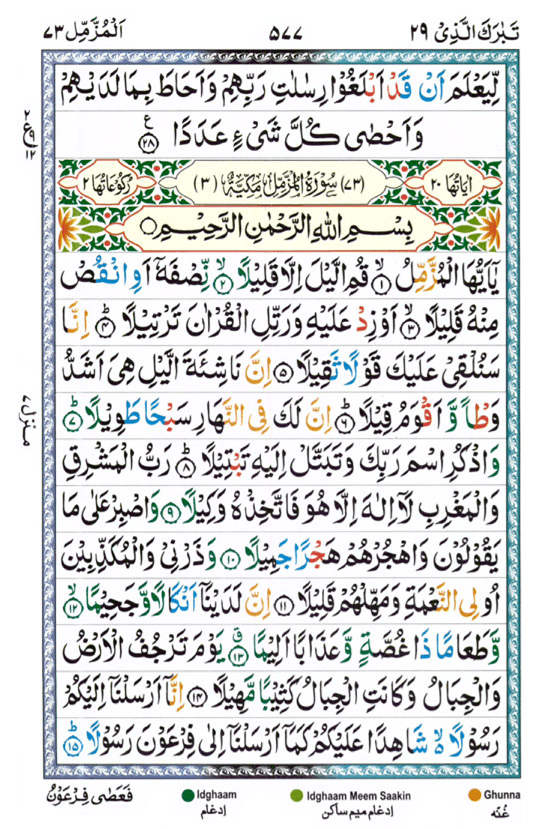 تَبٰرَكَ الَّذِىْ ٢٩
٥٧٧
اَلْمُزَّمِّل ٧٣
لِّيَعْلَمَ اَنْ قَدْ اَبْلَغُوْا رِسٰلٰتِ رَبِّهِمْ وَاَحَاطَ بِمَا لَدَيْهِمْ
وَاَحْصٰى كُلَّ شَىْءٍ عَدَدًا ۝٢٨
اٰيَاتُهَا ٢٠
(٧٣) سُوْرَةُ الْمُزَّمِّلِ مَكِّيَّةٌ (٣)
رُكُوْعَاتُهَا ٢
بِسْمِ اللّٰهِ الرَّحْمٰنِ الرَّحِيْمِ ۝
يٰۤاَيُّهَا الْمُزَّمِّلُ ۝١ قُمِ الَّيْلَ اِلَّا قَلِيْلًا ۝٢ نِّصْفَهٗۤ اَوِ انْقُصْ
مِنْهُ قَلِيْلًا ۝٣ اَوْ زِدْ عَلَيْهِ وَرَتِّلِ الْقُرْاٰنَ تَرْتِيْلًا ۝٤ اِنَّا
سَنُلْقِىْ عَلَيْكَ قَوْلًا ثَقِيْلًا ۝٥ اِنَّ نَاشِئَةَ الَّيْلِ هِىَ اَشَدُّ
وَطْاً وَّاَقْوَمُ قِيْلًا ۝٦ اِنَّ لَكَ فِى النَّهَارِ سَبْحًا طَوِيْلًا ۝٧
وَاذْكُرِ اسْمَ رَبِّكَ وَتَبَتَّلْ اِلَيْهِ تَبْتِيْلًا ۝٨ رَبُّ الْمَشْرِقِ
وَالْمَغْرِبِ لَاۤ اِلٰهَ اِلَّا هُوَ فَاتَّخِذْهُ وَكِيْلًا ۝٩ وَاصْبِرْ عَلٰى مَا
يَقُوْلُوْنَ وَاهْجُرْهُمْ هَجْرًا جَمِيْلًا ۝١٠ وَذَرْنِىْ وَالْمُكَذِّبِيْنَ
اُولِى النَّعْمَةِ وَمَهِّلْهُمْ قَلِيْلًا ۝١١ اِنَّ لَدَيْنَاۤ اَنْكَالًا وَّجَحِيْمًا ۝١٢
وَّطَعَامًا ذَا غُصَّةٍ وَّعَذَابًا اَلِيْمًا ۝١٣ يَوْمَ تَرْجُفُ الْاَرْضُ
وَالْجِبَالُ وَكَانَتِ الْجِبَالُ كَثِيْبًا مَّهِيْلًا ۝١٤ اِنَّاۤ اَرْسَلْنَاۤ اِلَيْكُمْ
رَسُوْلًا ۙ شَاهِدًا عَلَيْكُمْ كَمَاۤ اَرْسَلْنَاۤ اِلٰى فِرْعَوْنَ رَسُوْلًا ۝١٥
منزل ٧
Ghunna
غُنّه
Idghaam Meem Saakin
إدغام ميم ساكن
Idghaam
إدغام
فَعَصٰى فِرْعَوْنُ